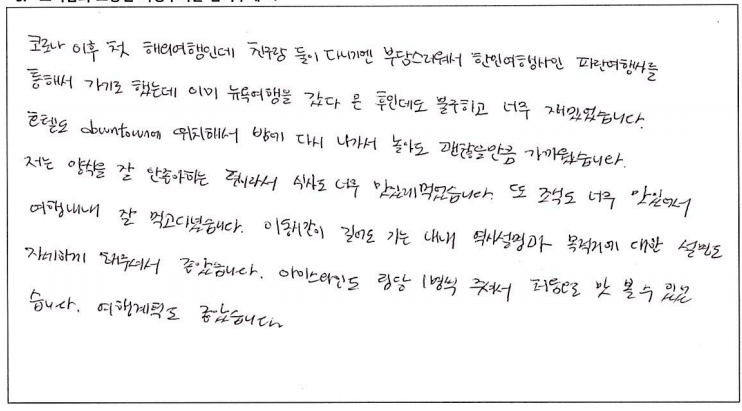 코로나 이후 첫 해외여행인데 친구랑 둘이 다니기엔 부담스러워서 한인여행사인 파란여행사를
통해서 가기로 했는데 이미 뉴욕여행을 갔다 온 후인데도 불구하고 너무 재밌었습니다.
호텔도 downtown에 위치해서 밤에 다시 나가서 놀아도 괜찮을만큼 가까웠습니다.
저는 양식을 잘 안좋아하는 편이라서 식사도 너무 맛있게먹었습니다. 또 조식도 너무 맛있어서
여행내내 잘 먹고다녔습니다. 이동시간이 길어도 가는 내내 역사설명과 목적지에 대한 설명도
자세하게 해주셔서 좋았습니다. 아이스와인도 팀당 1병씩 주셔서 처음으로 맛 볼 수 있었
습니다. 여행계획도 좋았습니다